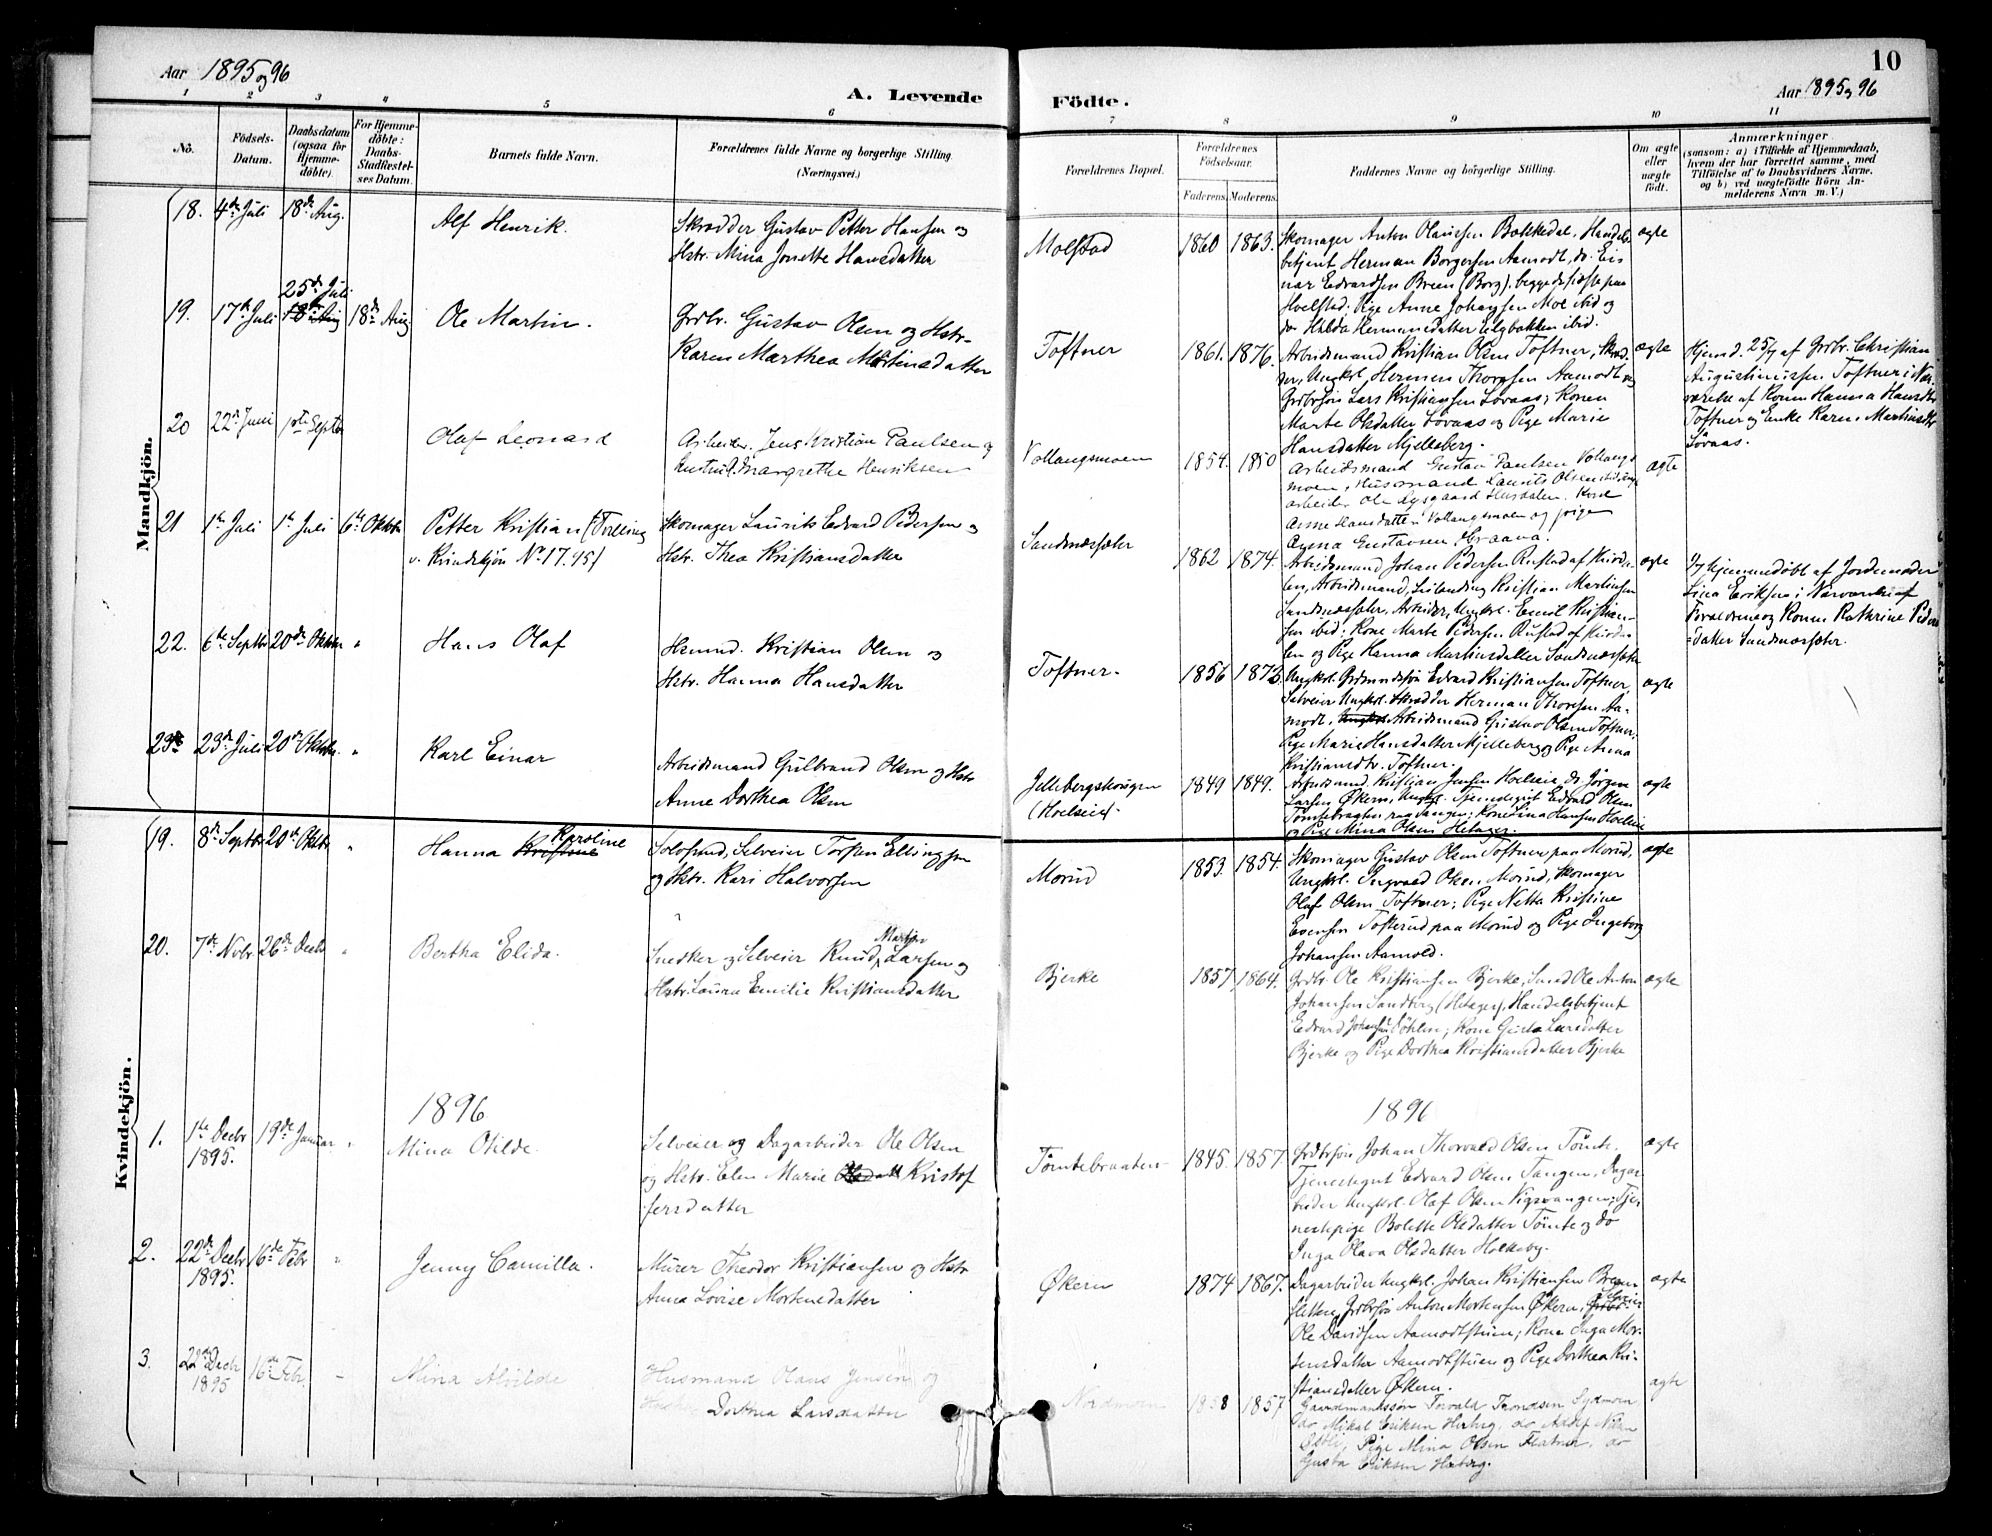 Aar 1895 og 96
A. Levende Födte.
10
Aar 1895 og 96
1 2 3 4 5 6 7 8 9 10 11
No.
Födsels-
Datum.
Daabsdatum
(ogsaa for
Hjemme-
döbte).
For Hjemme-
döbte:
Daabs-
Stadfæstel-
ses Datum.
Barnets fulde Navn.
Forældrenes fulde Navne og borgerlige Stilling.
(Næringsvei.)
Forældrenes Bopæl.
Forældrenes
Födselsaar.
Faderens. Moderens.
Faddernes Navne og borgerlige Stilling.
Om ægte
eller
uægte
födt.
Anmærkninger
(saasom: a) i Tilfælde af Hjemmedaab,
hvem der har forrettet samme, med
Tilföielse af to Daabsvidners Navne,
og b) ved uægtefödte Börn An-
melderens Navn m. V.)
Mandkjön.
18. 4de Juli 18de Aug. Alf Henrik.
Skrædder Gustav Petter Hansen og
Hstr. Mina Jonette Hansdatter
Molstad 1860 1863.
Skomager Anton Olaussen Bækkedal, Handels-
betjent Herman Borgersen Aamodt, do. Ei-
nar Edvardsen Breen (Borg), begge de sidste paa
Hoelstad; Pige Anne Johansen Moe ibid og
do Hilda Hermansdatter Elgbakken ibid.
ægte
19. 17de Juli 25de Juli 18de Aug 18de Aug Ole Martin.
Grdbr. Gustav Olsen og Hstr.
Karen Marthea Mortensdatter
Toftner 1861. 1876.
Arbeidsmand Kristian Olsen Toftner, Skræd-
der, Ungkrl. Hermen Thorsen Aamodt og
Grdbrsøn Lars Kristiansen Løvaas; Konen
Marte Olsdatter Løvaas og Pige Marie
Hansdatter Mjelleberg.
ægte
Hjemd. 25/7 af Grdbr. Christian
Augustinussen Toftner i Nær-
værelse af Konen Hanna Hansdtr
Toftner og Enke Karen Martinsdtr
Løvaas.
20 22de Juni 1ste Septbr Olaf Leonard
Arbeider. Jens Kristian Paulsen og
Hustru Margrethe Henriksen
Vollangsmoen 1854. 1850
Arbeidsmand Gustav Paulsen Vollangs
moen, Husmand Laurits Olsen ibid,
arbeider Ole Lysgaard Husdalen. Kone
Anne Hansdatter Vollangsmoen og pige
Agna Gustavsen Braana.
ægte
21 1ste Juli 1ste Juli 6te Oktbr Petter Kristian (Tvilling
v. Kvindekjøn No 17. 95)
Skomager Laurits Edvard Pedersen og
Hstr. Thea Kristiansdatter
Sandnæssæter 1862 1874.
Arbeidsmand Johan Pedersen Rustad af Hurda-
len, Arbeidsmand, Leilænding Kristian Martinsen
Sandnæssæter, Arbeider, Ungkrl. Emil Kristian-
sen ibid; Kone Marte Pedersen Rustad af Hurda-
len og Pige Hanna Martinsdatter Sandnæssæter
ægte
1/7 hjemmedøbt af Jordemoder
Lina Eriksen i Nærværelse af
Forældrene og Konen Kathrine Peders-
datter Sandnæssæter.
22. 6te Septbr 20de Oktbr " Hans Olaf
Husmd. Kristian Olsen og
Hstr. Hanna Hansdatter
Toftner. 1856 1873.
Ungkrl. Grdmandssøn Edvard Kristiansen Toftner,
Selveier Ungkrl. Skrædder Herman Thorsen Aa-
modt, Ungkrl. Arbeidsmand Gustav Olsen Toftner;
Pige Marie Hansdatter Mjelleberg og Pige Anna
Kristiansdtr. Toftner.
ægte
23. 23de Juli 20de Oktbr. " Karl Einar
Arbeidsmand Gulbrand Olsen og Hstr
Anne Dorthea Olsen
Jellebergskougen
(Hoelseie). 1849 1849.
Arbeidsmd. Kristian Jensen Hoelseie, do. Jörgen
Larsen Økern, Ungkrl. Tjenestegut Edvard Olsen
Tømtebraaten paa Tangen; Kone Lina Hansen Hoelseie
og Pige Mina Olsen Hetager.
ægte
Kvindekjön.
19. 8de Septbr 20de Oktbr " Hanna Kristine Karoline
Selvsmd, Selveier Torsten Ellingsen
og Hstr. Kari Halvorsen
Morud 1853. 1854.
Skomager Gustav Olsen Toftner paa Morud,
Ungkrl. Ingvald Olsen Morud, Skomager
Olaf Olsen Toftner; Pige Netta Kristine
Evensen Tofterud paa Morud og Pige Ingeborg
Johansen Aamold.
ægte
20. 7de Novbr 26de Decbr " Bertha Elida.
Snedker og Selveier Knud Martin Larsen og
Hstr. Laura Emilie Kristiansdatter
Bjerke 1857 1864.
Grdbr. Ole Kristiansen Bjerke, Smed Ole Anton
Johansen Sandberg (Hetager), Handelsbetjent
Edvard Johansen Døhlen; Kone Gusta Larsdatter
Bjerke og Pige Dorthea Kristiansdatter Bjerke
ægte
1896 1896
1. 1ste Decbr
1895. 19de Januar " Mina Otilde.
Selveier og Dagarbeider Ole Olsen
og Hstr. Elen Marie Kristof
fersdatter
Tømtebraaten 1845. 1857.
Grdbrsøn Johan Thorvald Olsen Tömte,
Tjenestegut Edvard Olsen Tangen, Dagar-
beider Ungkrl. Olaf Olsen Vigsvangen; Tje-
nestepige Bolette Olsdatter Tömte og do
Inga Olava Olsdatter Holkeby.
ægte
2. 22de Decbr
1895. 16de Febr " Jenny Camilla.
Murer Theodor Kristiansen og Hstr
Anna Lovise Mortensdatter
Økern 1874 1867.
Dagarbeider Ungkrl. Johan Kristiansen Breen-
sletten, Grdbrsøn Anton Mortensen Økern, Selveier
Ole Davidsen Aamodtstuen; Kone Inga Mor-
tensdatter Aamodtstuen og Pige Dorthea Kri-
stiansdatter Økern.
ægte
3. 22de Decbr
1895 16de Febr. Mina Alvilde
Husmand Hans Jensen og
Hustru Dorthea Larsdatter
Nordmoen 1858 1857
Gaardmandssøn Torvald Trondsen Sydmoen
do Mikal Eriksen Heberg, do Adolf Nilsen
Østli, Pige Mina Olsen Flatner, do
Gusta Eriksen Heberg.
ægte